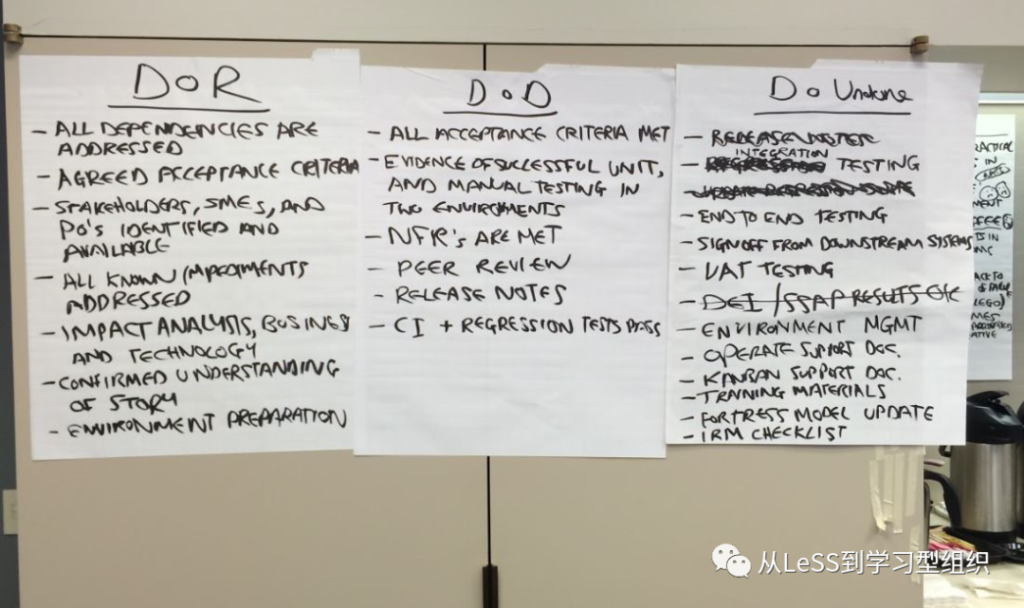 DoR
- ALL DEPENDENCIES ARE
ADDRESSED
- AGREED ACCEPTANCE CRITERIA
- STAKEHOLDERS, SMES, AND
PO'S IDENTIFIED AND
AVAILABLE
- ALL KNOWN IMPEDIMENTS
ADDRESSED
- IMPACT ANALYSIS, BUSINESS
AND TECHNOLOGY
- CONFIRMED UNDERSTANDING
OF STORY
- ENVIRONMENT PREPARATION
DoD
- ALL ACCEPTANCE CRITERIA MET
- EVIDENCE OF SUCCESSFUL UNIT,
AND MANUAL TESTING IN
TWO ENVIRONMENTS
- NFR'S ARE MET
- PEER REVIEW
- RELEASE NOTES
- CI + REGRESSION TESTS PASS
Do Undone
- RELEASE NOTES
INTEGRATION
- REGRESSION TESTING
- END TO END TESTING
- SIGN OFF FROM DOWNSTREAM SYSTEMS
- UAT TESTING
- RESULTS ETC
- ENVIRONMENT MGMT
- OPERATE SUPPORT DOC.
- KANBAN SUPPORT DOC.
- TRAINING MATERIALS
- FORTRESS MODEL UPDATE
- IRM CHECKLIST
从LeSS到学习型组织